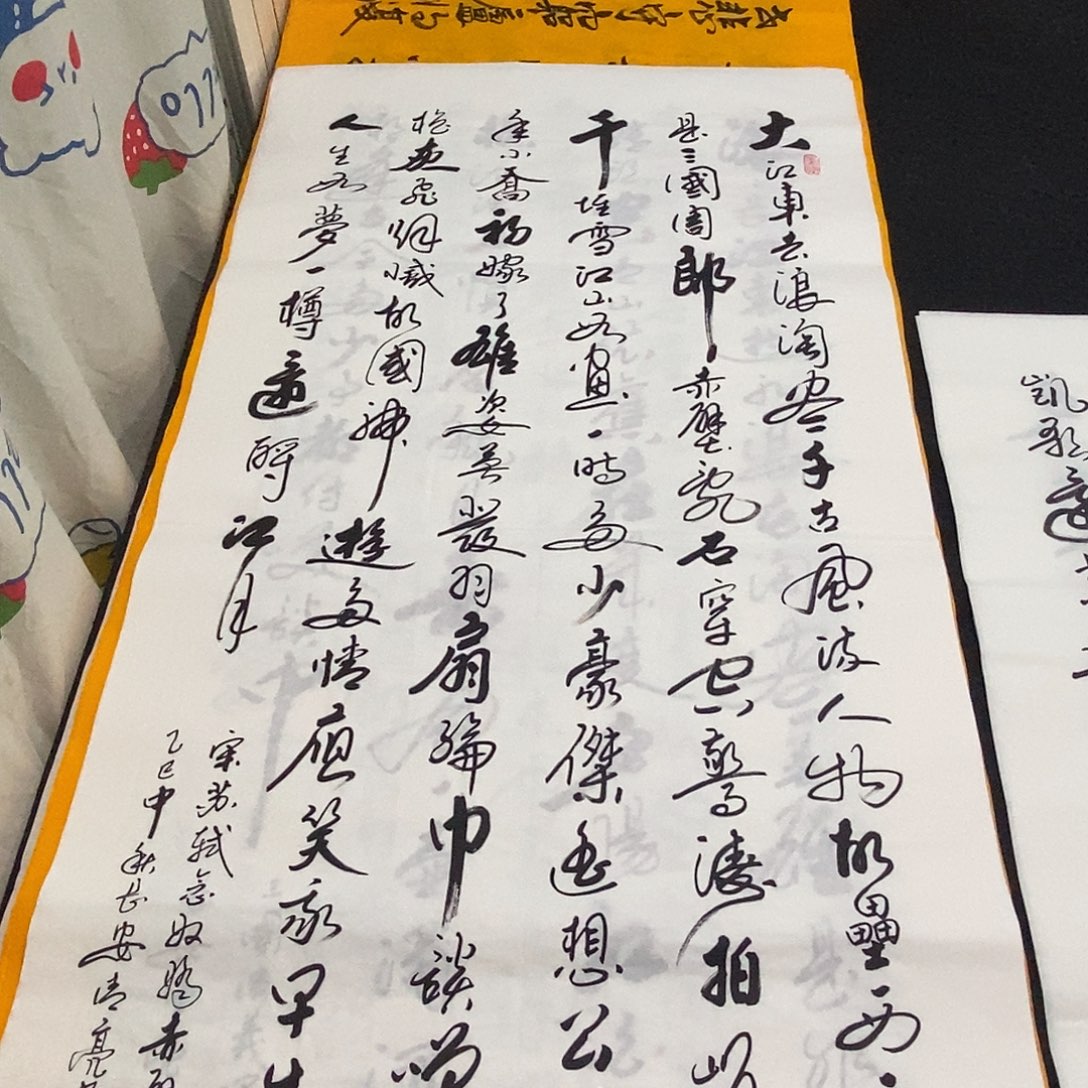 大江東去浪淘盡千古風流人物故壘西
是三國周郎赤壁亂石穿空驚濤拍岸
千堆雪江山如畫一時多少豪傑遙想公
年小喬初嫁了雄姿英發羽扇綸巾談
檣飛烟滅故國神遊多情應笑我早生
人生如夢一樽還酹江月
宋苏轼念奴嬌赤
乙巳中秋長安清亮
凱歌還